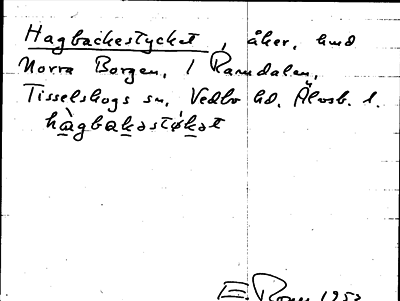 Hagbackestycket, åker, hmd
Norra Borgen, / Ramdalen,
Tisselskogs sn, Vedbo hd. Älvsb. l.
hàgbakəstykət
E. 1953